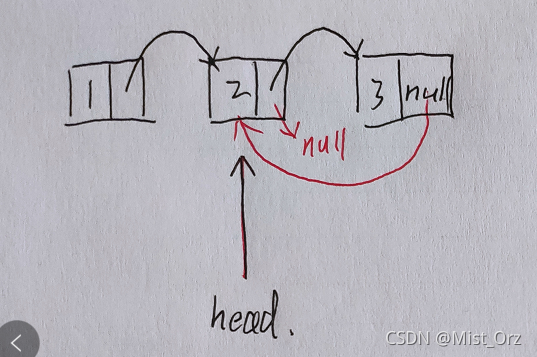 1
2
3 null
null
head.
CSDN @Mist_Orz